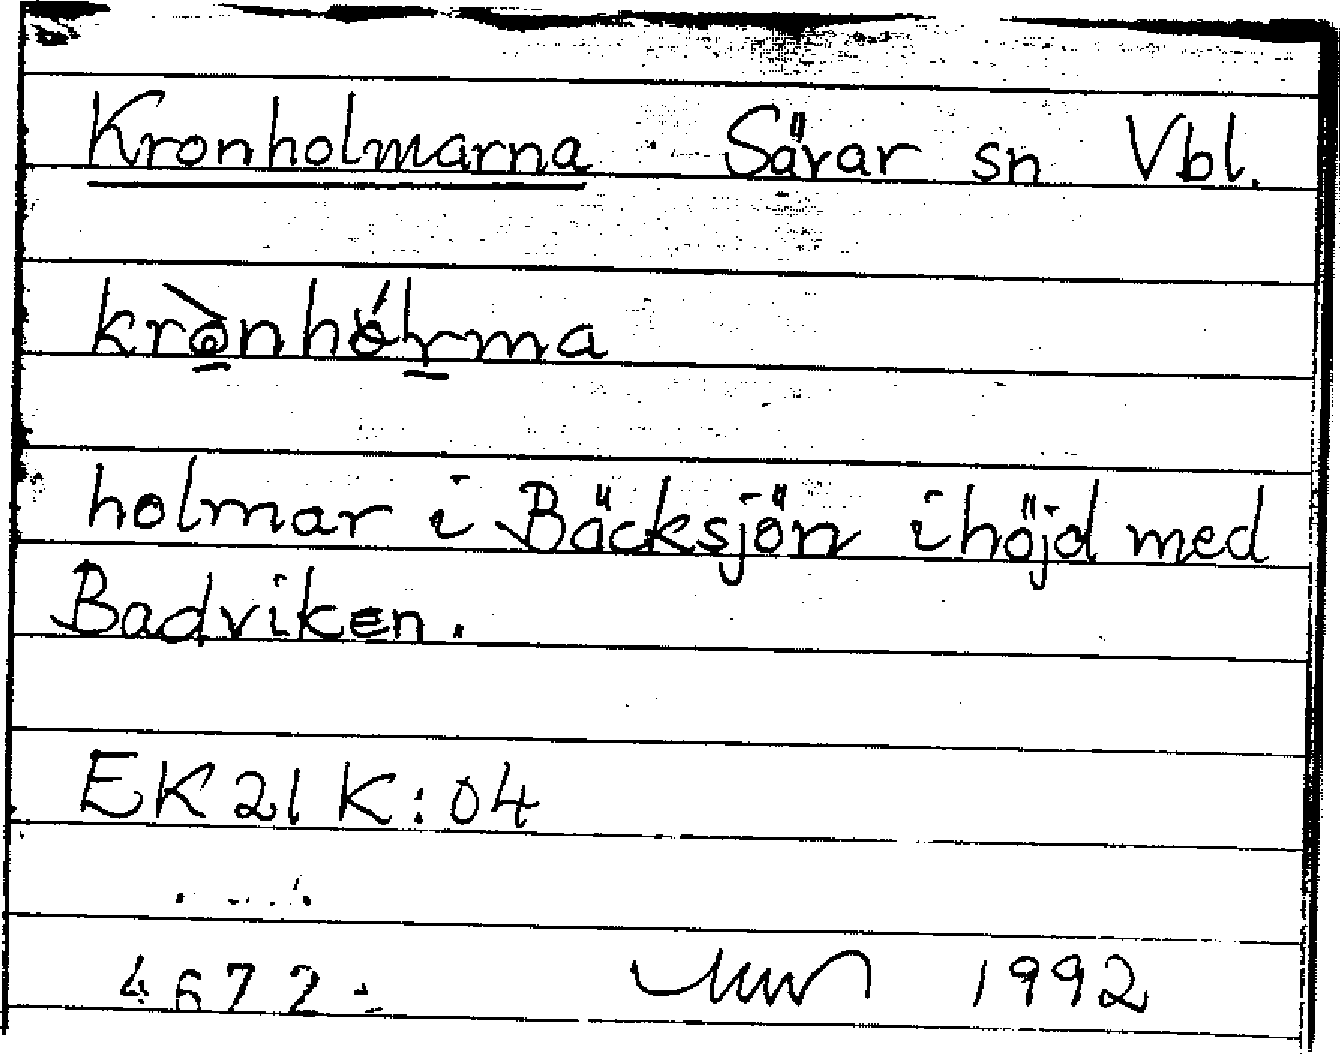 Kronholmarna Sävar sn Vbl.
holmar i Bäcksjön i höjd med
Badviken.
EK 21 K:04
4672
1992